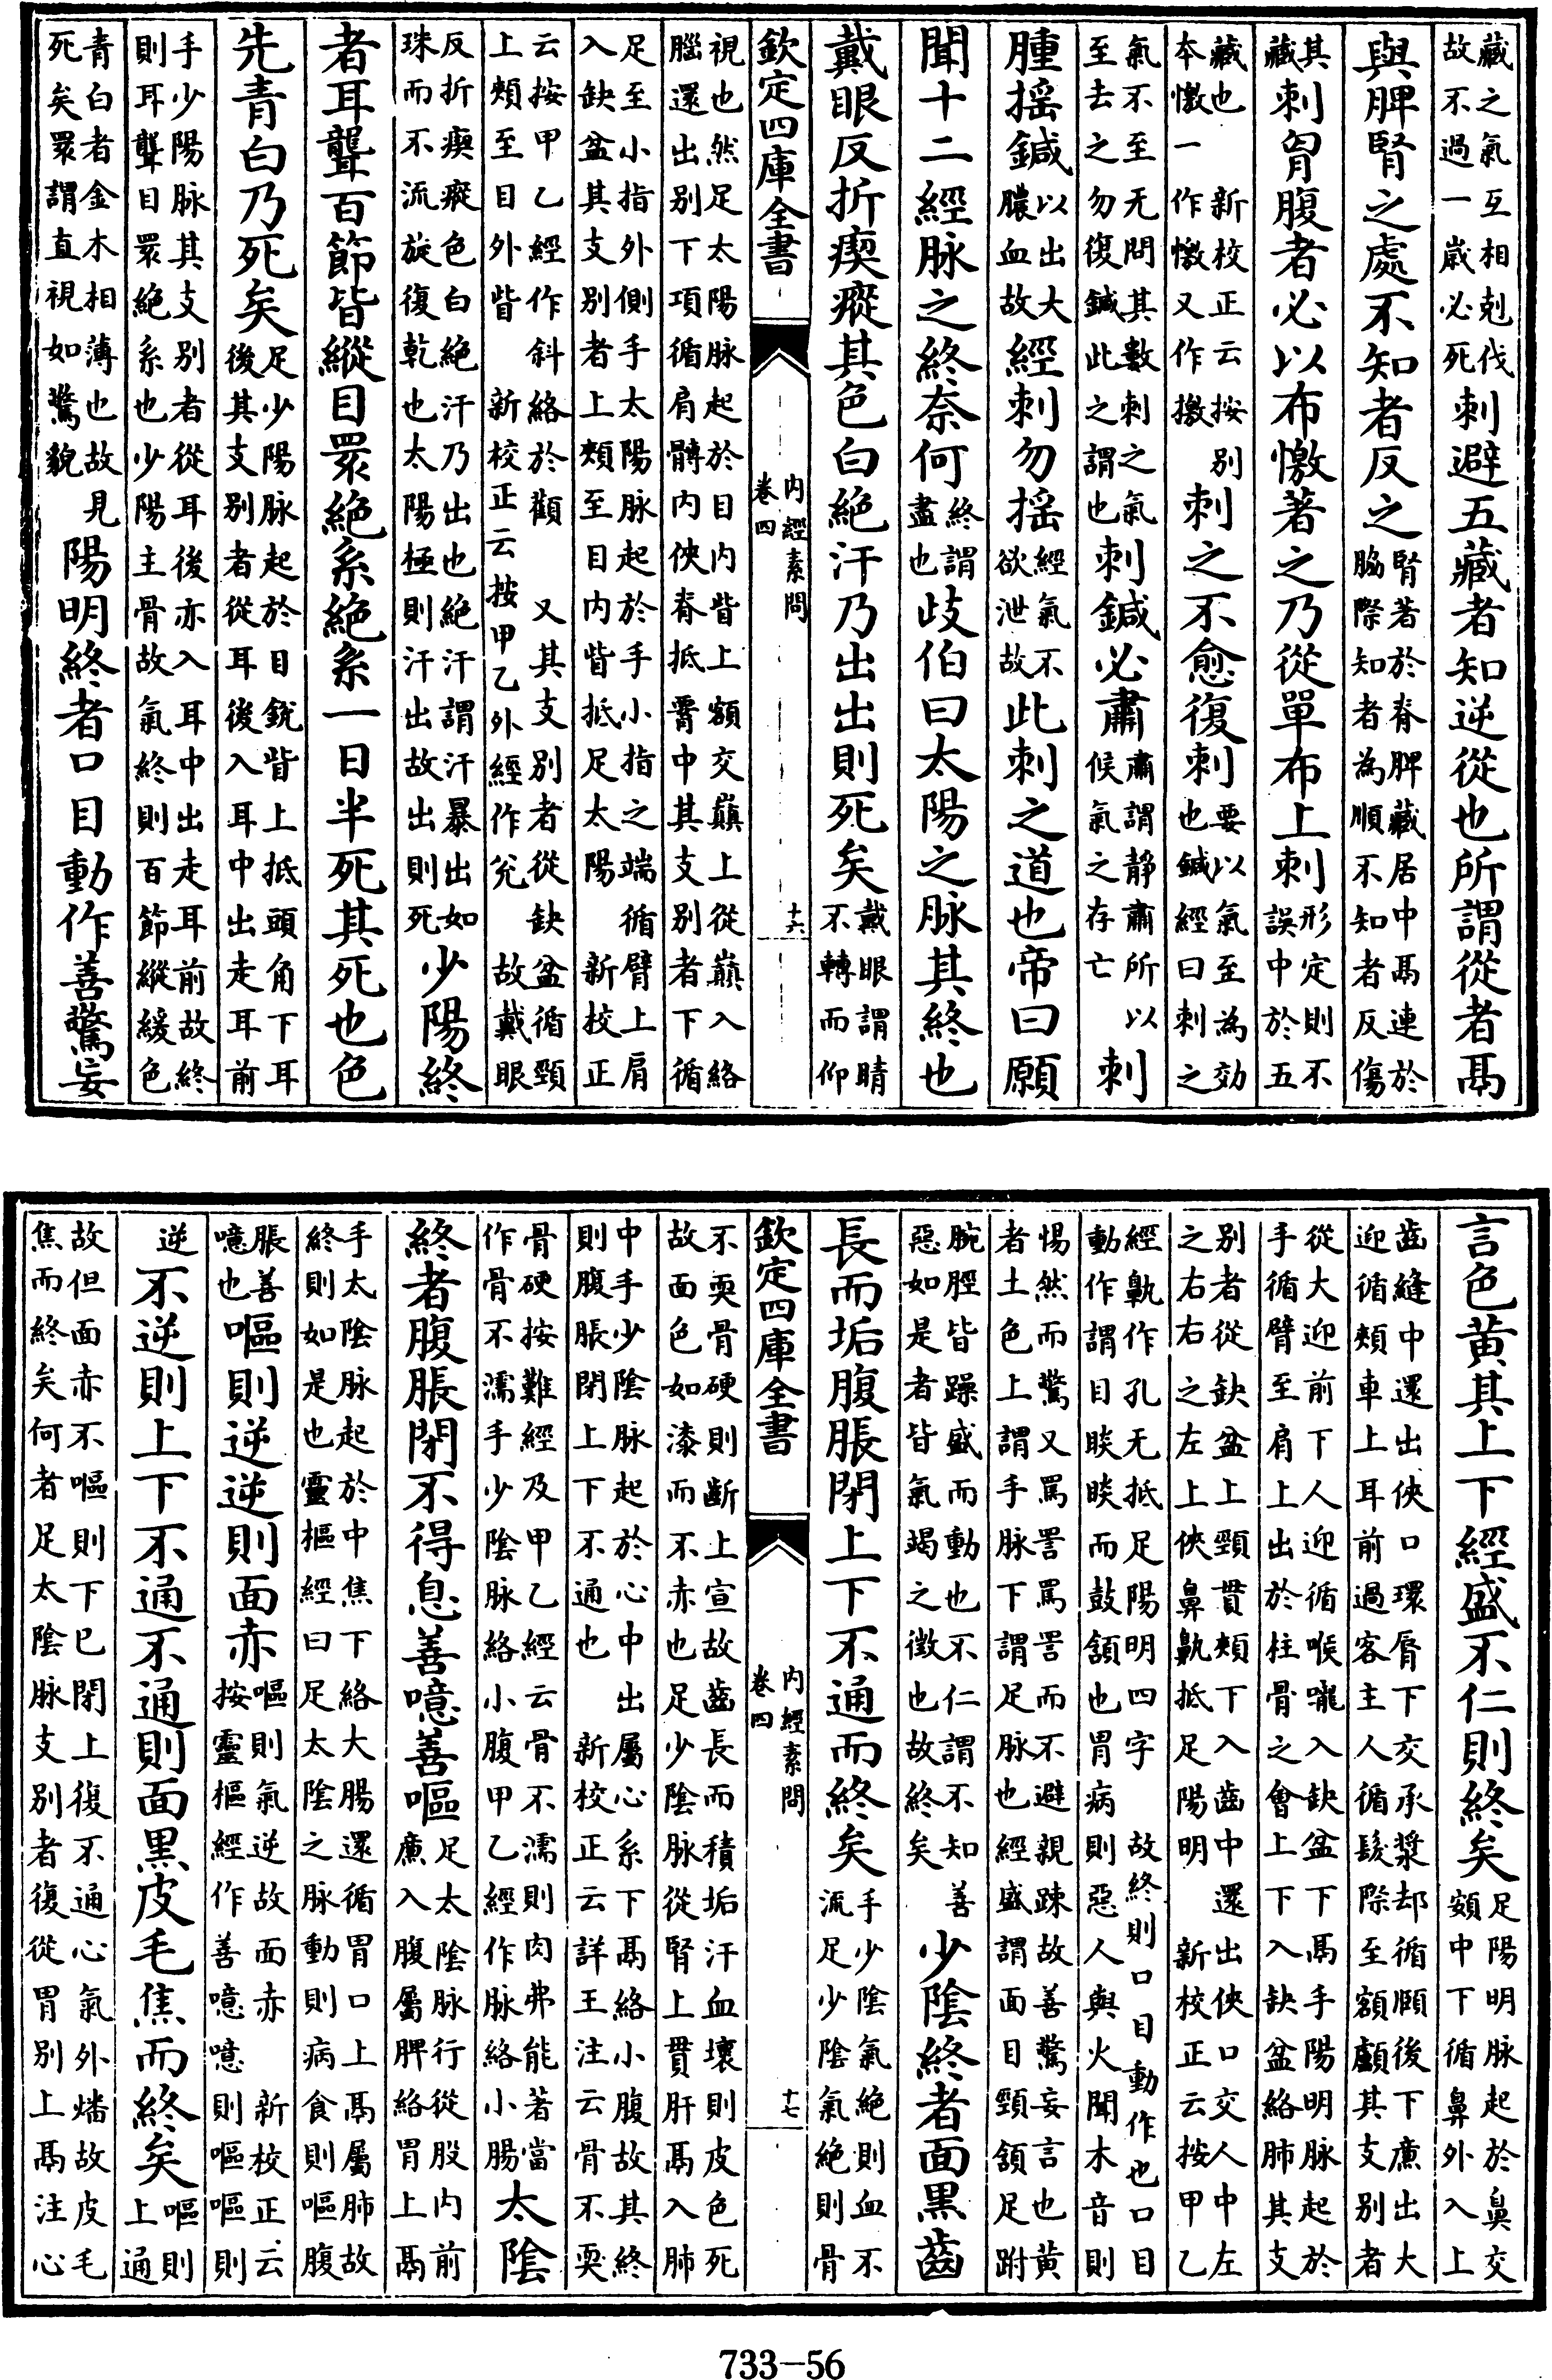 藏之氣互相剋伐故不過一嵗必死刺避五藏者知逆從也所謂從者鬲
與脾腎之處不知者反之腎著於脊脾藏居中鬲連於脇際知者為順不知者反傷
其藏刺胷腹者必以布憿著之乃從單布上刺形定則不誤中於五
藏也新校正云按别本憿一作憿又作撽刺之不愈復刺要以氣至為効也鍼經曰刺之
氣不至无問其數刺之氣至去之勿復鍼此之謂也刺鍼必肅肅謂静肅所以候氣之存亡刺
腫揺鍼以出大膿血故經刺勿揺經氣不欲泄故此刺之道也帝曰願
聞十二經脉之終奈何終謂盡也歧伯曰太陽之脉其終也
戴眼反折瘈瘲其色白絶汗乃出出則死矣戴眼謂睛不轉而仰
欽定四庫全書 内經素問 卷四 十六
視也然足太陽脉起於目内眥上額交巔上從巔入絡腦還出别下項循肩髆内俠脊抵𦝫中其支别者下循
足至小指外側手太陽脉起於手小指之端循臂上肩入缺盆其支别者上頰至目内眥抵足太陽 新校正
云按甲乙經作斜絡於顴 又其支别者從缺盆循頸上頰至目外眥 新校正云按甲乙外經作兊 故戴眼
反折瘈瘲色白絶汗乃出也絶汗謂汗暴出如珠而不流旋復乾也太陽極則汗出故出則死少陽終
者耳聾百節皆縱目睘絶系絶系一日半死其死也色
先青白乃死矣足少陽脉起於目銳眥上抵頭角下耳後其支别者從耳後入耳中出走耳前
手少陽脉其支别者從耳後亦入耳中出走耳前故終則耳聾目睘絶系也少陽主骨故氣終則百節縱緩色
青白者金木相薄也故見死矣睘謂直視如驚貌陽明終者口目動作善驚妄
言色黄其上下經盛不仁則終矣足陽明脉起於鼻交頞中下循鼻外入上
齒縫中還出俠口環脣下交承漿却循頥後下廉出大迎循頰車上耳前過客主人循髮際至額顱其支别者
從大迎前下人迎循喉嚨入缺盆下鬲手陽明脉起於手循臂至肩上出於柱骨之會上下入缺盆絡肺其支
别者從缺盆上頸貫頰下入齒中還出俠口交人中左之右右之左上俠鼻鼽抵足陽明 新校正云按甲乙
經鼽作孔无抵足陽明四字 故終則口目動作也口目動作謂目睒睒而鼓頷也胃病則惡人與火聞木音則
惕然而驚又罵詈罵詈而不避親踈故善驚妄言也黄者土色上謂手脉下謂足脉也經盛謂面目頸頷足跗
腕脛皆躁盛而動也不仁謂不知善惡如是者皆氣竭之徴也故終矣少隂終者面黒齒
長而垢腹脹閉上下不通而終矣手少隂氣絶則血不流足少隂氣絶則骨
欽定四庫全書 内經素問 卷四 十七
不耎骨硬則斷上宣故齒長而積垢汗血壞則皮色死故面色如漆而不赤也足少隂脉從腎上貫肝鬲入肺
中手少隂脉起於心中出屬心系下鬲絡小腹故其終則腹脹閉上下不通也 新校正云詳王注云骨不耎
骨硬按難經及甲乙經云骨不濡則肉弗能著當作骨不濡手少隂脉絡小腹甲乙經作脉絡小腸太隂
終者腹脹閉不得息善噫善嘔足太隂脉行從股内前亷入腹屬脾絡胃上鬲
手太隂脉起於中焦下絡大腸還循胃口上鬲屬肺故終則如是也靈樞經曰足太隂之脉動則病食則嘔腹
脹善噫也嘔則逆逆則面赤嘔則氣逆故面赤 新校正云按靈樞經作善噫噫則嘔嘔則
逆不逆則上下不通不通則面黒皮毛焦而終矣嘔則上通
故但面赤不嘔則下已閉上復不通心氣外燔故皮毛焦而終矣何者足太隂脉支别者復從胃别上鬲注心
733-56